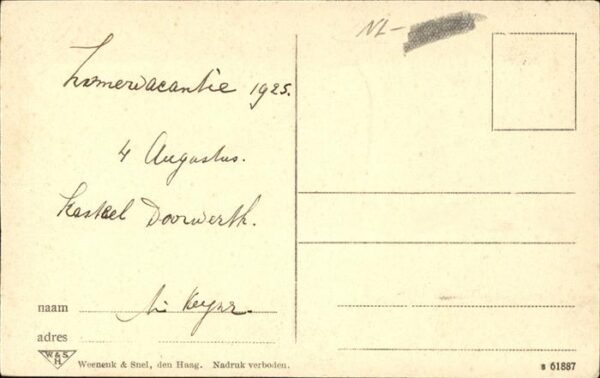 NL-
Zomervacantie 1925.
4 Augustus.
Kasteel Doorwerth.
naam
adres
W & S. H.
Weenenk & Snel, den Haag. Nadruk verboden.
B 61887